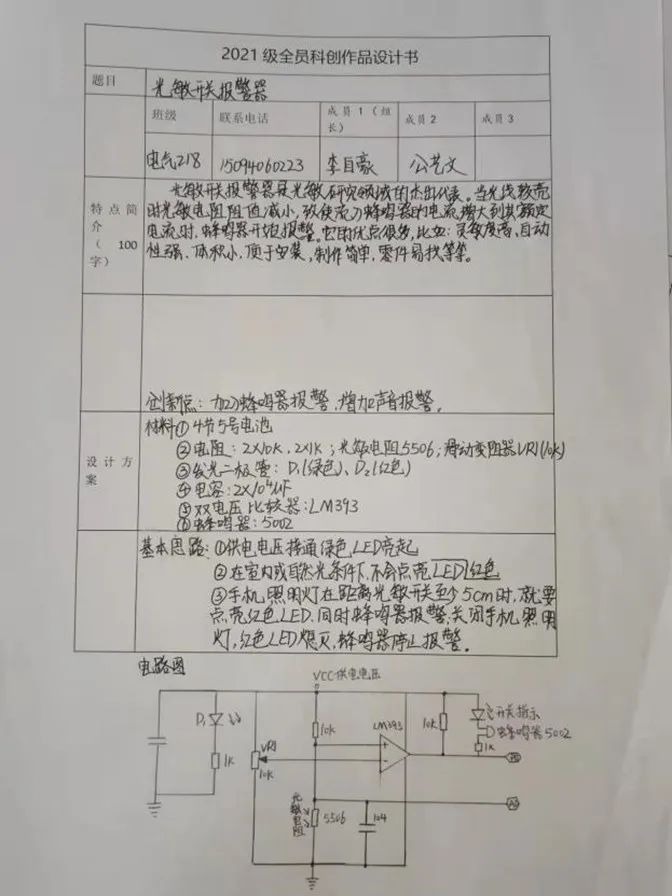 2021 级全员科创作品设计书
题目
光敏开关报警器
班级
联系电话
成员 1（组长）
成员 2
成员 3
电气218
15094060223
李自豪
公艺文
特点简介（100字）
光敏开关报警器是光敏研究领域的杰出代表。当光线较亮
时光敏电阻阻值减小，致使流入蜂鸣器的电流增大到其额定
电流时，蜂鸣器开始报警。它的优点很多，比如：灵敏度高，自动
性强、体积小，便于安装，制作简单，零件易找等等。
创新点：加入蜂鸣器报警，增加声音报警。
设计方案
材料① 4节5号电池
②电阻：2X10K，2X1K；光敏电阻5506；滑动变阻器VR1(10K)
③发光二极管：D₁(绿色)、D₂(红色)
④电容：2X10⁴UF
⑤双电压比较器：LM393
⑥蜂鸣器：5002
基本思路：①供电电压接通绿色LED亮起
②在室内或自然光条件下，不会点亮LED红色
③手机照明灯在距离光敏开关至少5cm时，就要
点亮红色LED，同时蜂鸣器报警，关闭手机照明
灯，红色LED熄灭，蜂鸣器停止报警。
电路图
VCC供电电压
D₁
1K
VR1
10K
10K
LM393
+
-
10K
开关指示
蜂鸣器5002
1K
光敏电阻
5506
104